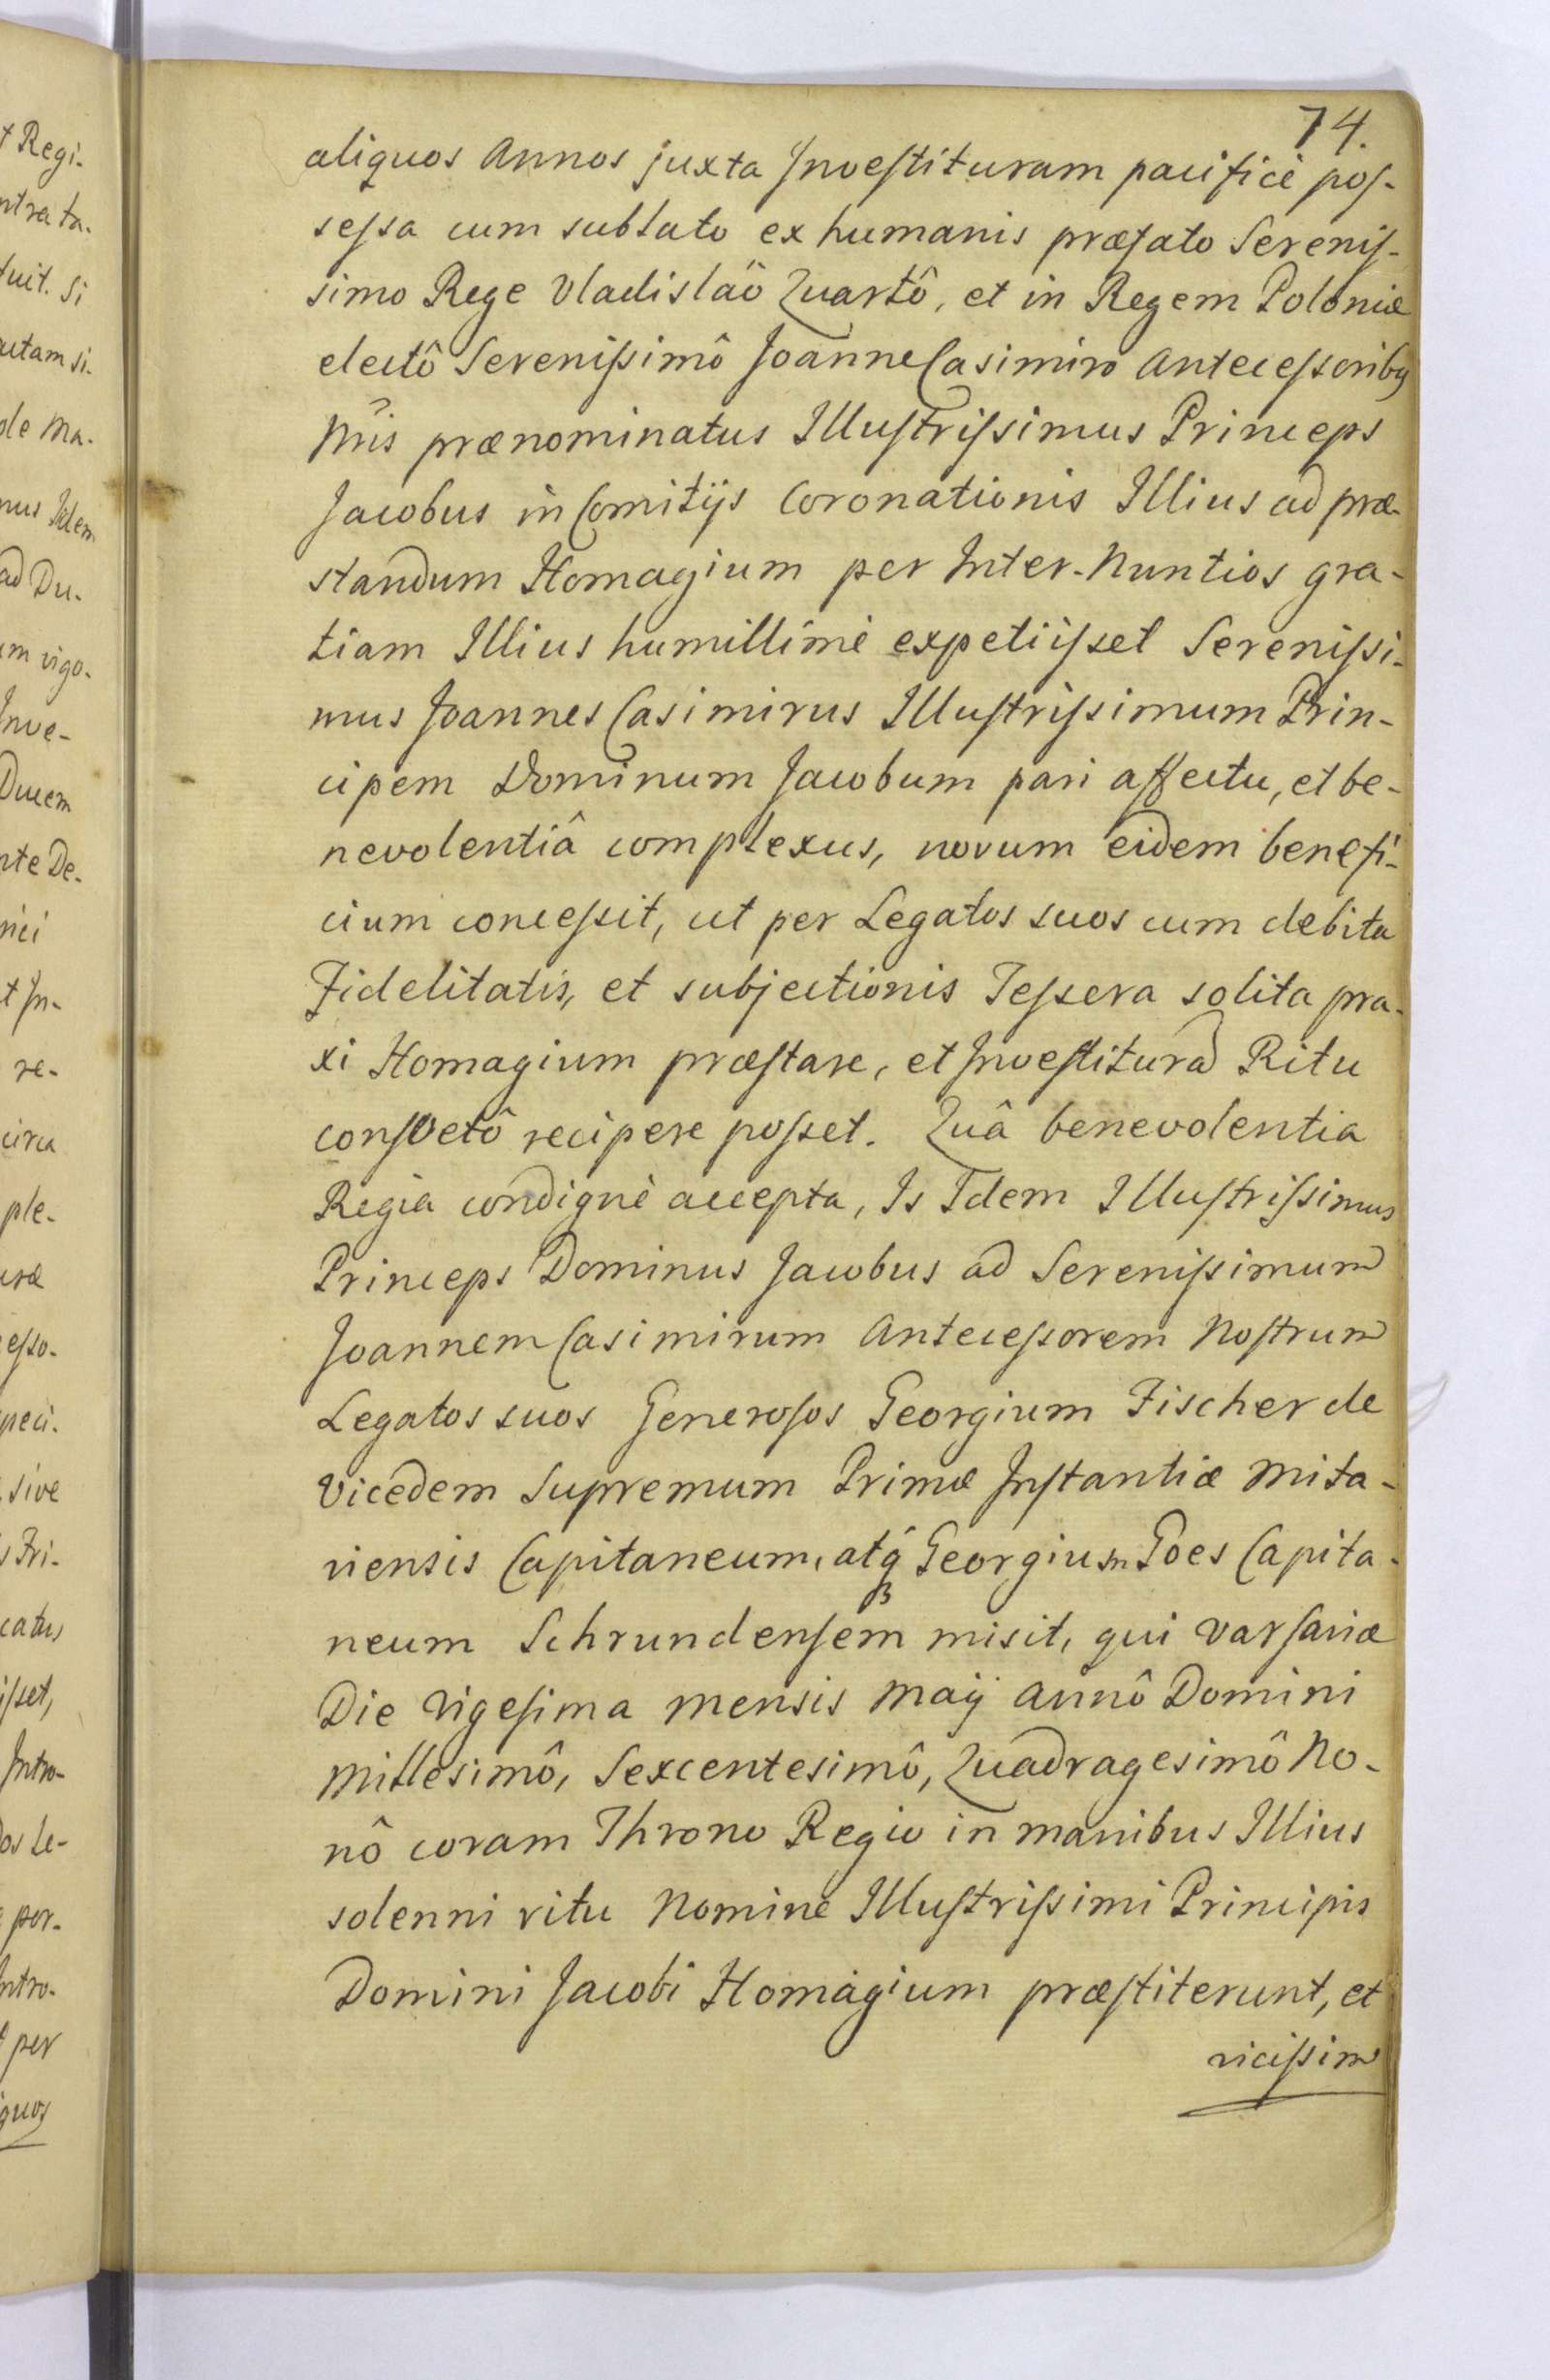 74.
aliquos Annos juxta Investituram pacificè pos-
sessa cum sublato ex humanis præfato Serenis-
simo Rege Vladislaô Quartô, et in Regem Poloniæ
electô Serenissimô Joanne Casimiro Antecessoribus
Nris prænominatus Illustrissimus Princeps
Jacobus in Comitijs Coronationis Illius ad præ-
standum Homagium per Inter-Nuntios gra-
tiam Illius humillimè expetiisset Serenissi-
mus Joannes Casimirus Illustrissimum Prin-
cipem Dominum Jacobum pari affectu, et be-
nevolentiâ complexus, novum eidem benefi-
cium concessit, ut per Legatos suos cum debita
Fidelitatis, et subjectionis Tessera solita pra-
xi Homagium præstare, et Investiturã Ritu
consvetô recipere posset. Quâ benevolentia
Regia condignè accepta, Is Idem Illustrissimus
Princeps Dominus Jacobus ad Serenissimum
Joannem Casimirum Antecessorem Nostrum
Legatos suos Generosos Georgium Fischer de
Vicedem Supremum Primæ Instantiæ Mita-
viensis Capitaneum, atq3 Georgium Goes Capita-
neum Schrundensem misit, qui Varsaviæ
Die Vigesima Mensis Maÿ Annô Domini
Millesimô, Sexcentesimô, Quadragesimô No-
nô coram Throno Regio in manibus Illius
solenni ritu Nomine Illustrissimi Principis
Domini Jacobi Homagium præstiterunt, et
vicissim